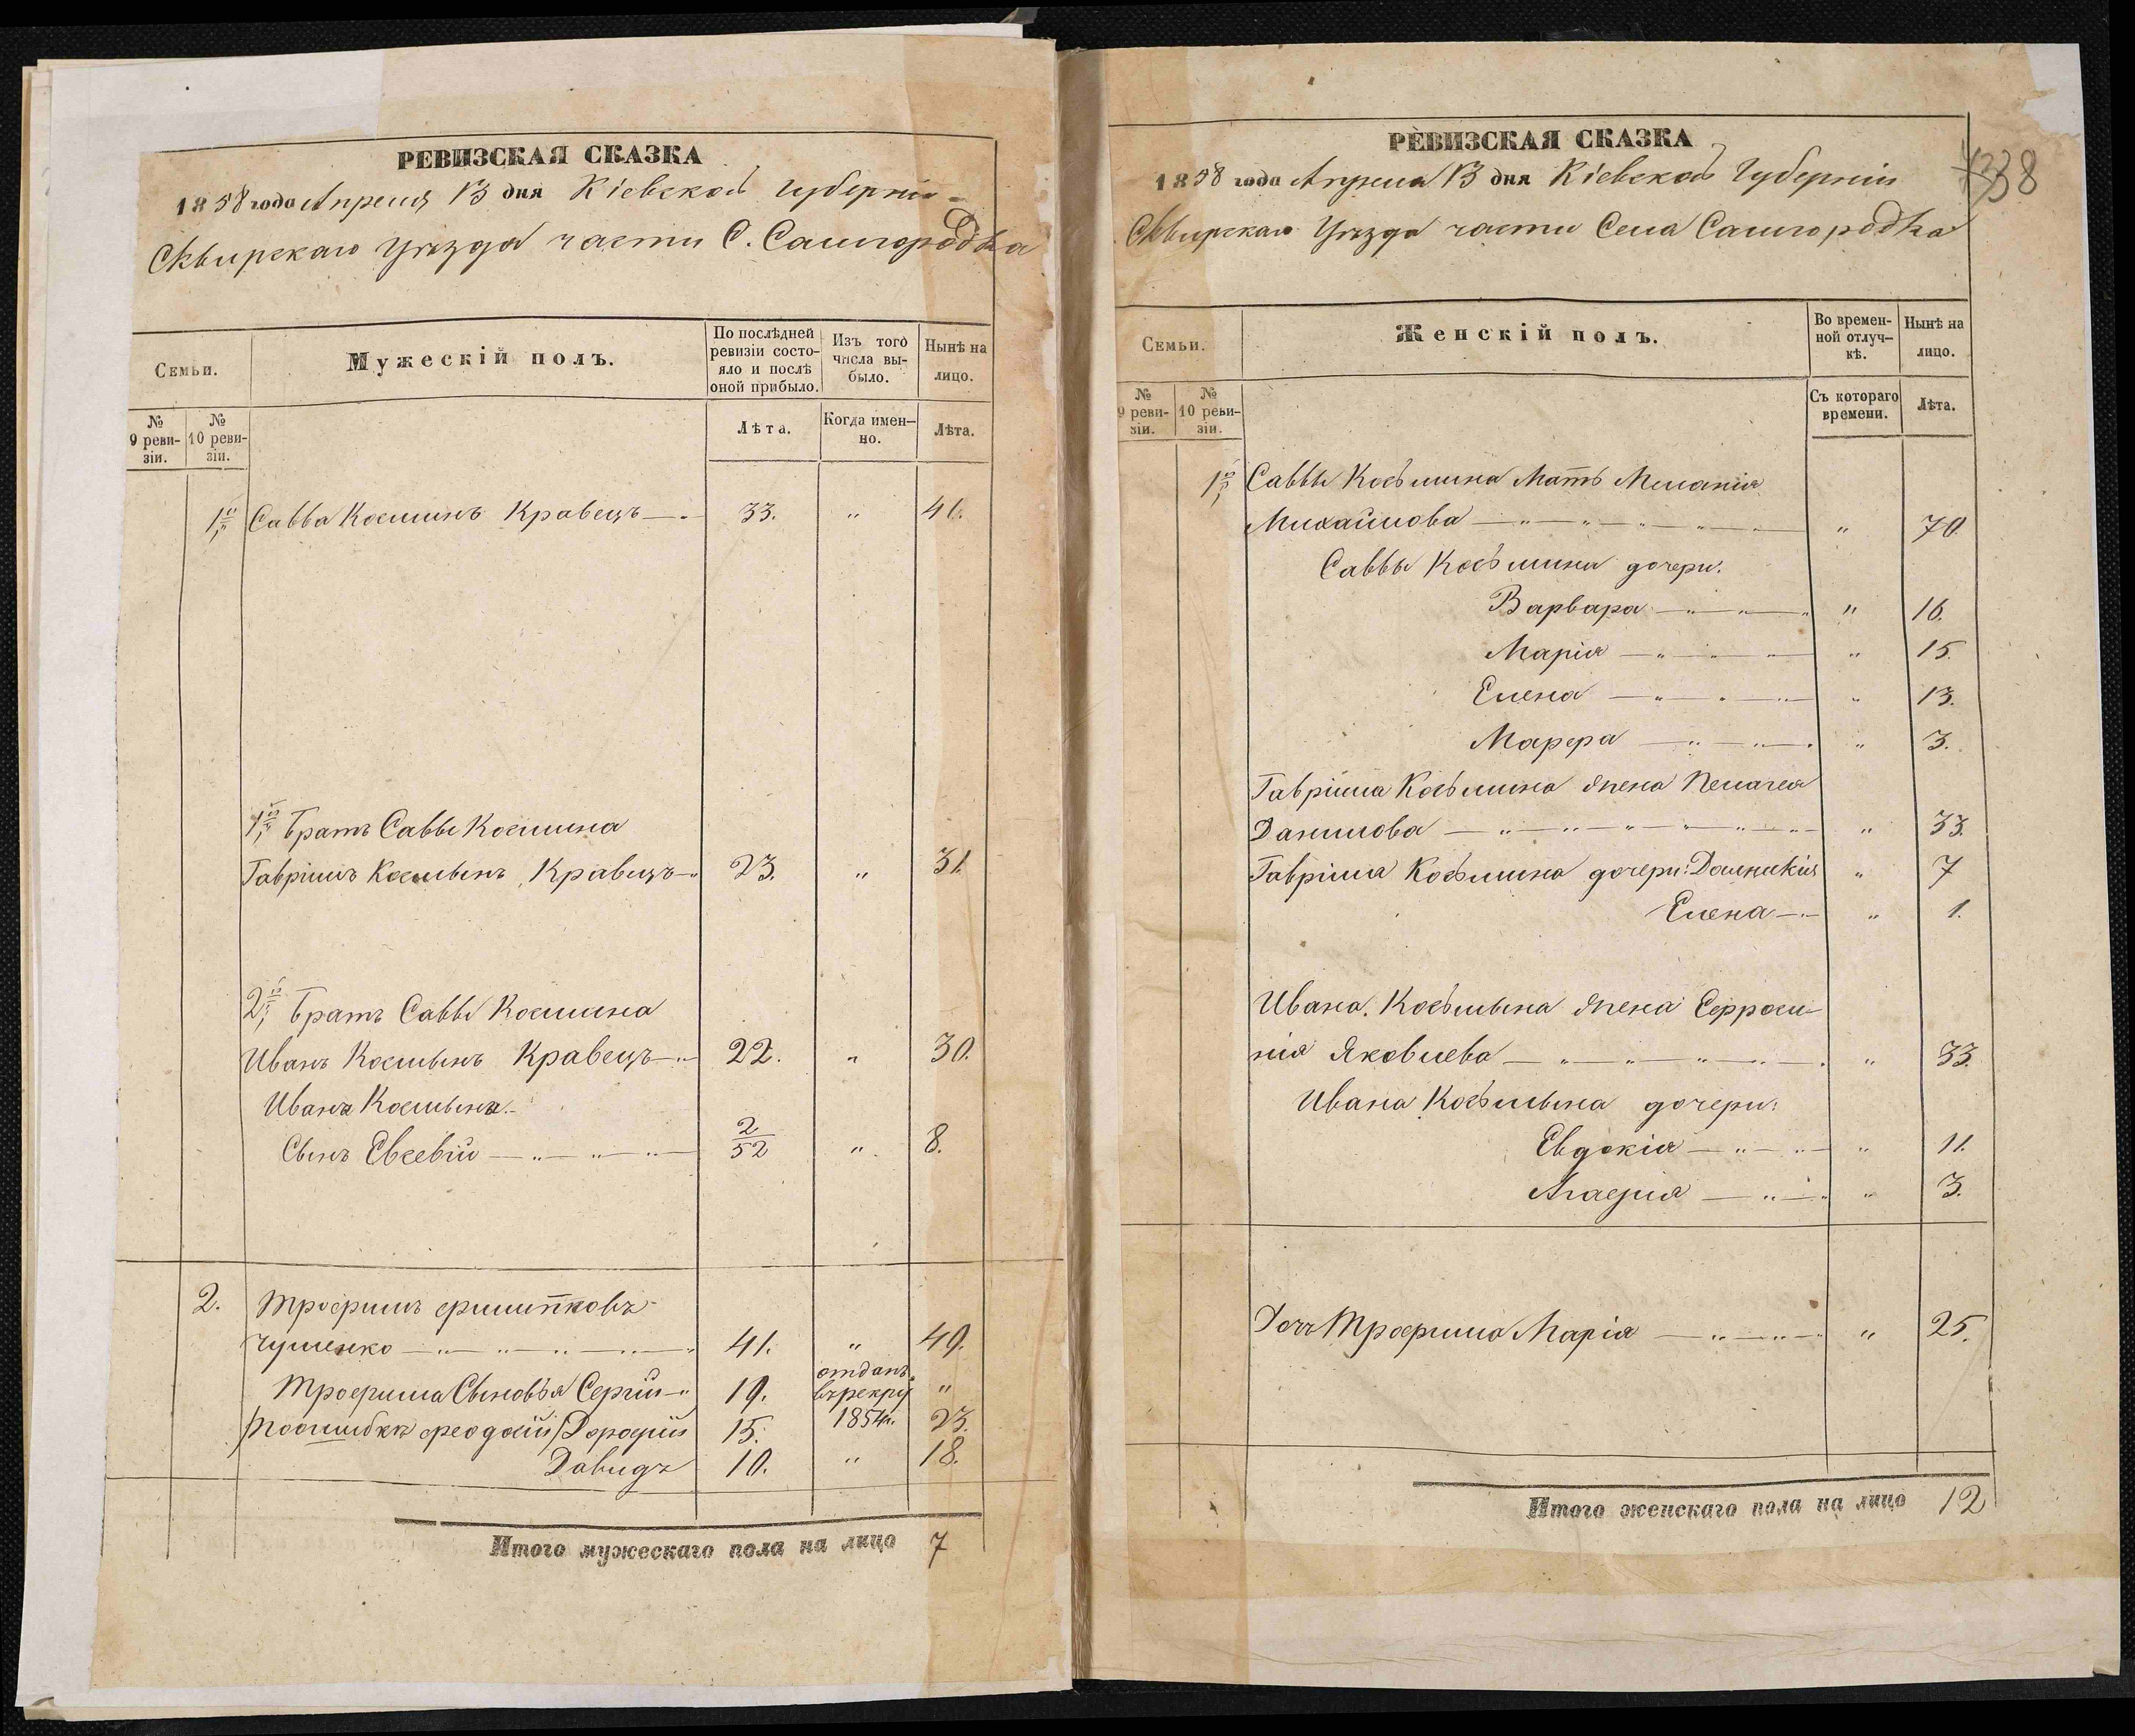 РЕВИЗСКАЯ СКАЗКА
1858 года Апреля 13 дня Кіевской Губерніи
Сквирскаго Уѣзда части С. Самгородка
Семьи.
Мужескій полъ.
По послѣдней ревизіи состояло и послѣ оной прибыло.
Изъ того числа выбыло.
Нынѣ на лицо.
№ 9 ревизіи.
№ 10 ревизіи.
Лѣта.
Когда именно.
Лѣта.
1 Савва Косминъ Кравецъ 33. " 41.
1й Братъ Саввы Космина
Гавріилъ Космынъ Кравецъ 23. " 31.
2й Братъ Саввы Космина
Иванъ Космынъ Кравецъ 22. " 30.
Ивана Космына
Сынъ Евсевій 2/52 " 8.
2. Трофимъ
чуменко 41. " 49.
Трофима Сыновья Сергій 19. отданъ въ рекру 1854г. "
По ошибкѣ феодосій/Дорофій 15. 23.
Давидъ 10. " 18.
Итого мужескаго пола на лицо 7
РЕВИЗСКАЯ СКАЗКА
338
1858 года Апреля 13 дня Кіевской Губерніи
Сквирскаго Уѣзда части Села Самгородка
Семьи.
Женскій полъ.
Во временной отлучкѣ.
Нынѣ на лицо.
№ 9 ревизіи.
№ 10 ревизіи.
Съ котораго времени.
Лѣта.
1 Саввы Козьмина Мать Меланія
Михайлова " 70.
Саввы Козьмина дочери.
Варвара " 16.
Марія " 15.
Елена " 13.
Марфа " 3.
Гавріила Козьмина жена Пелагея
Данилова " 33.
Гавріила Козьмина дочери: Домникія " 7
Елена " 1.
Ивана Козьмына жена Ефроси-
нія Яковлева " 33.
Ивана Козьмына дочери:
Евдокія " 11.
Агафія " 3.
Дочь Трофима Марія " 25.
Итого женскаго пола на лицо 12